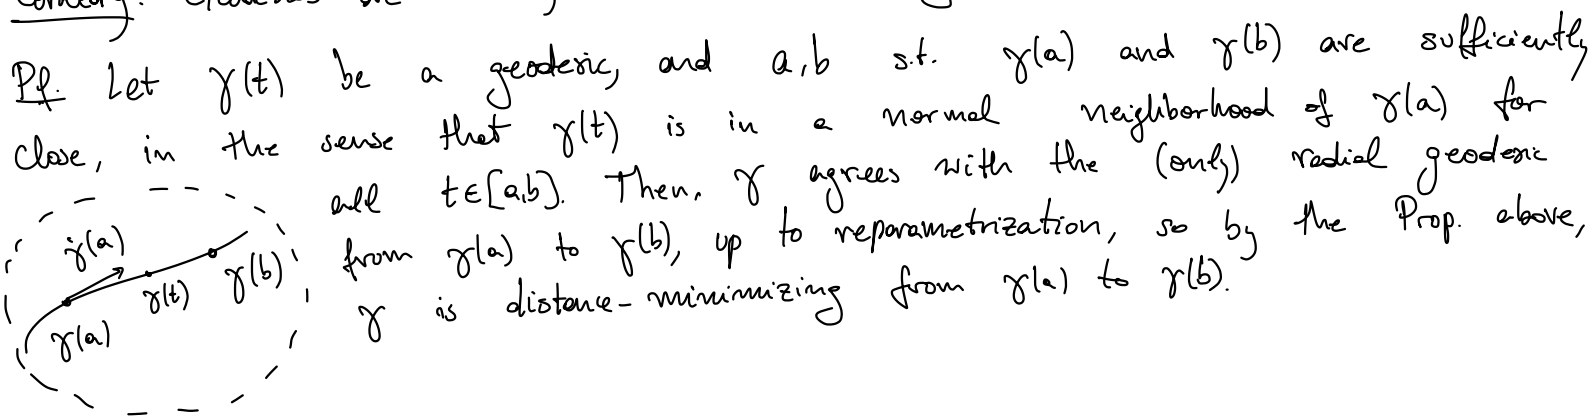 Pf. Let γ(t) be a geodesic, and a,b s.t. γ(a) and γ(b) are sufficiently
close, in the sense that γ(t) is in a normal neighborhood of γ(a) for
all t∈[a,b]. Then, γ agrees with the (only) radial geodesic
from γ(a) to γ(b), up to reparametrization, so by the Prop. above,
γ is distance-minimizing from γ(a) to γ(b).
γ̇(a)
γ(t) γ(b)
γ(a)